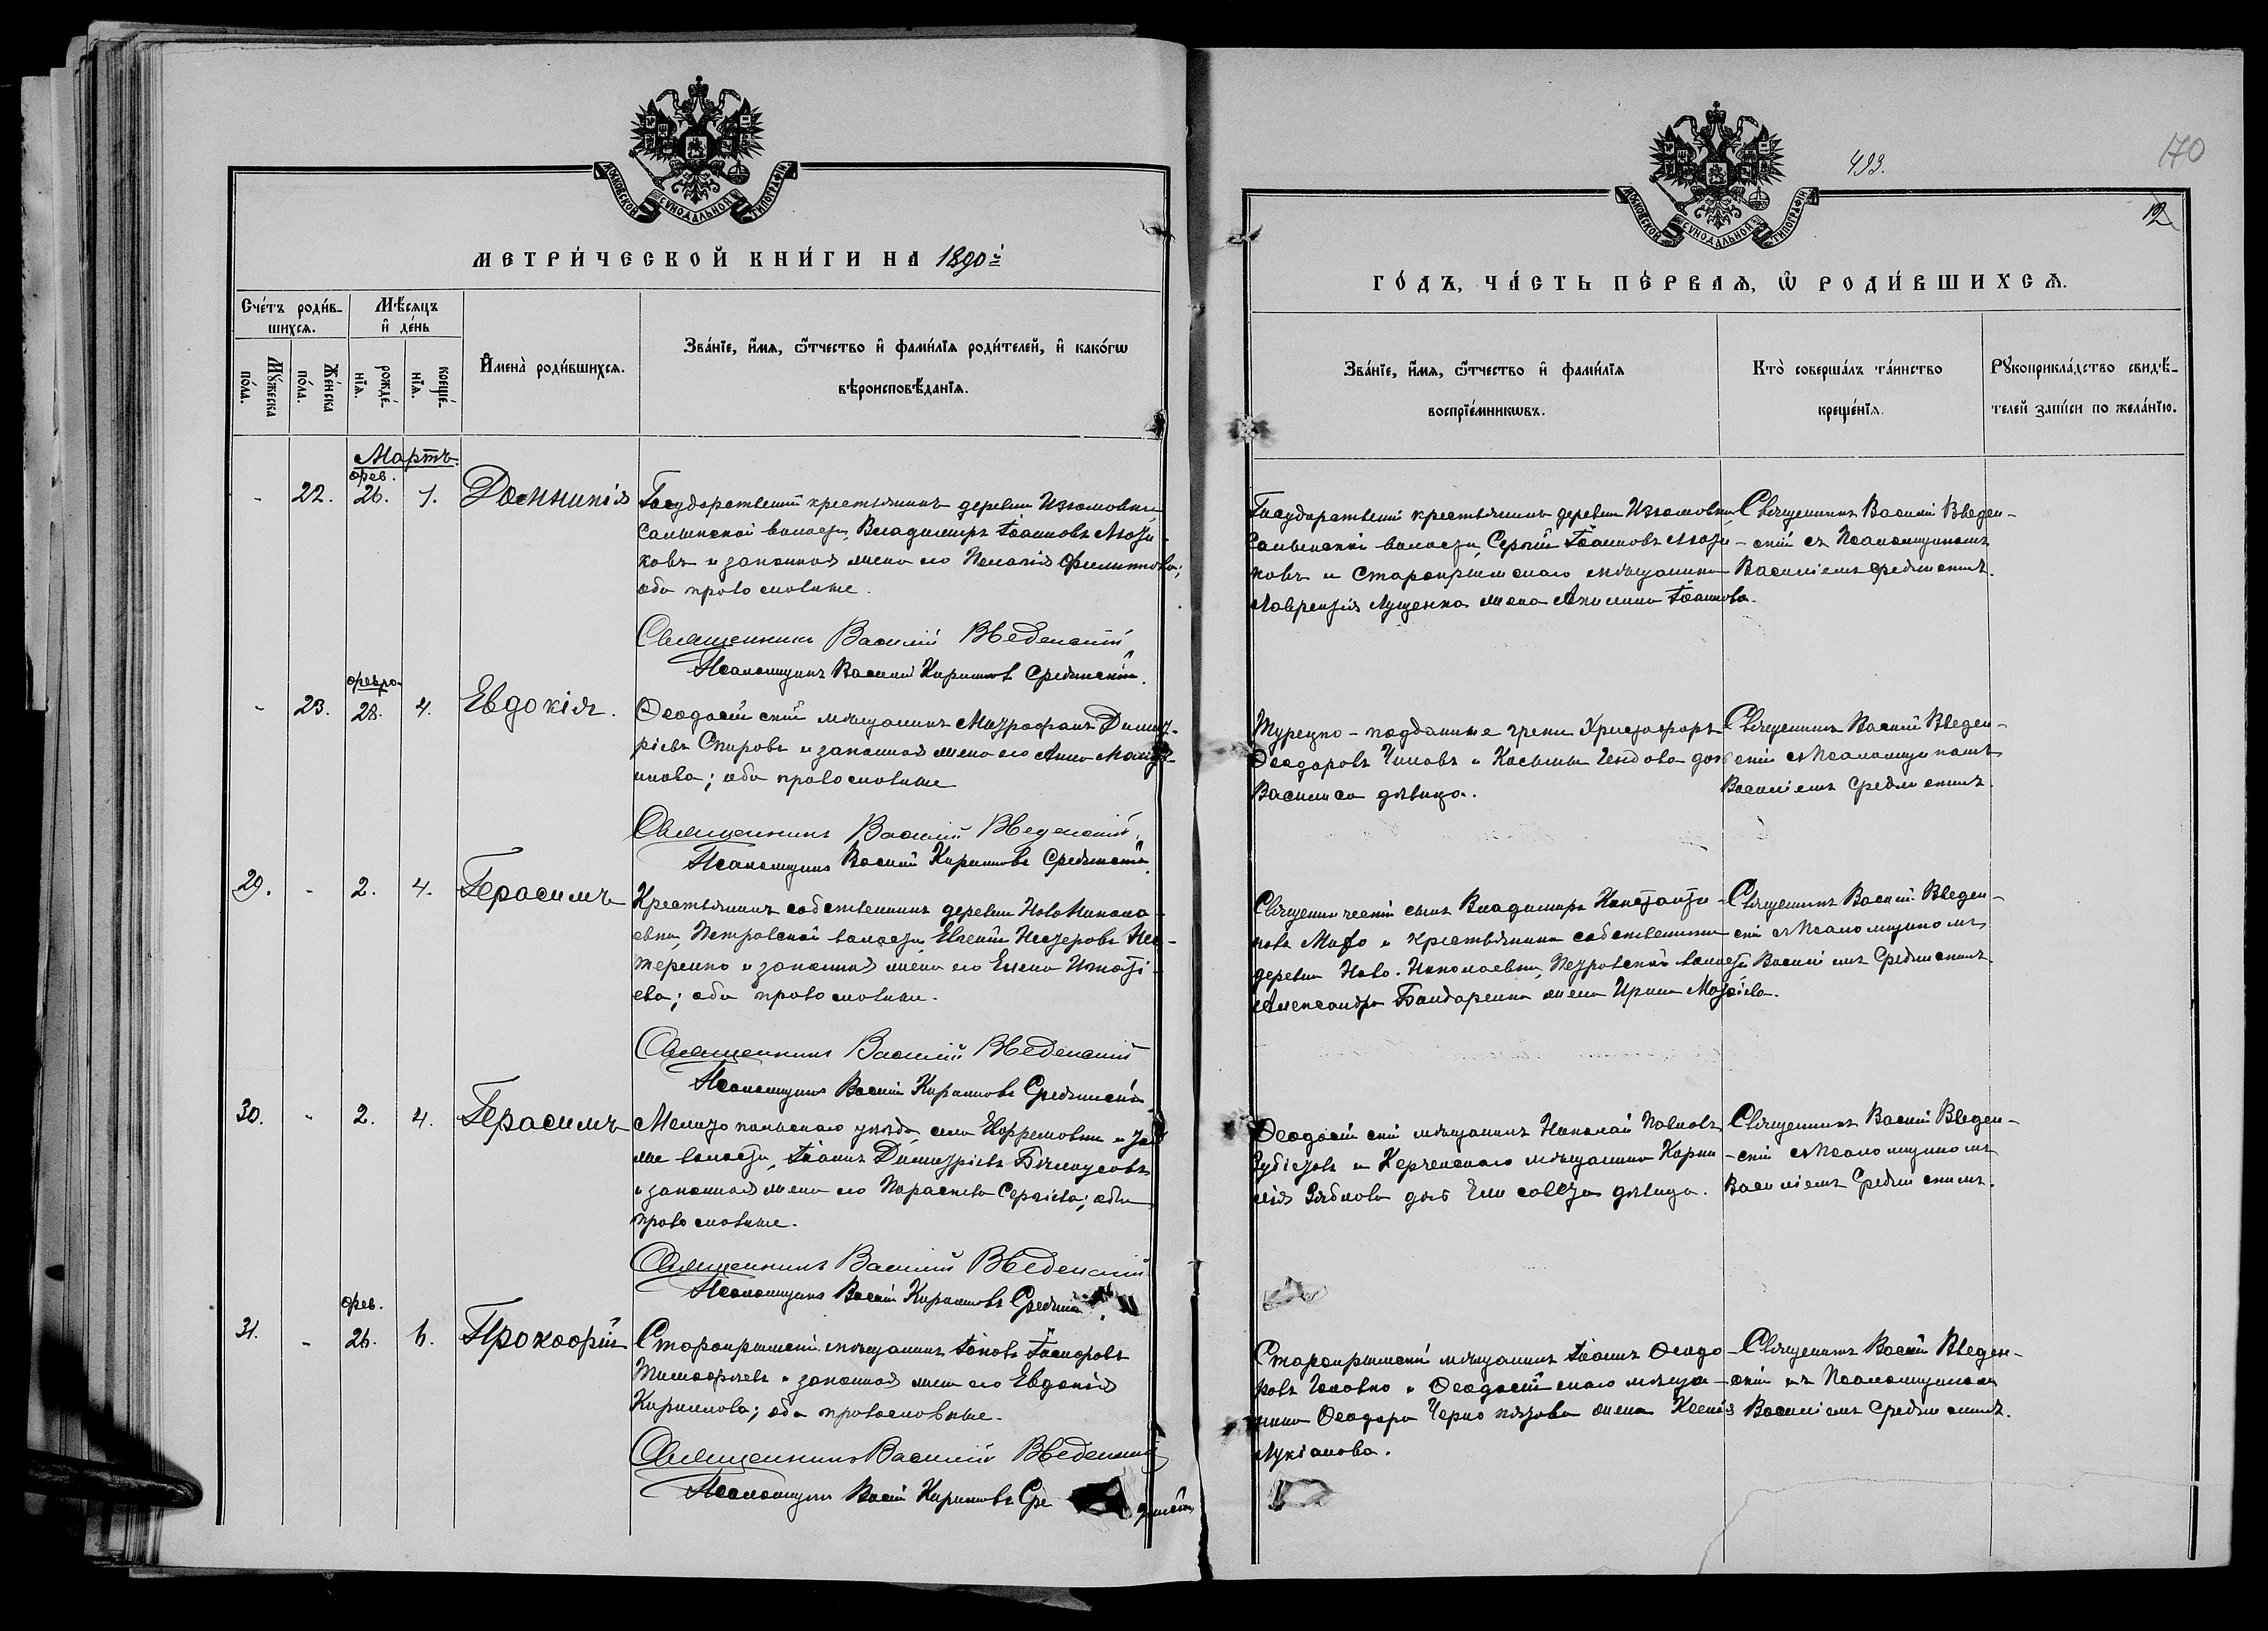 МОСКОВСКОЙ СѴНОДАЛЬНОЙ ТИПОГРАФІИ
МЕТРИ́ЧЕСКОЙ КНИ́ГИ НА 1890й
Сче́тъ роди́в-
шихсѧ.
Мѣ́сѧцъ
и҆ де́нь
Мꙋ́жеска
по́ла.
Же́нска
по́ла.
рожде́-
нїѧ.
креще́-
нїѧ.
И҆мена̀ роди́вшихсѧ.
Зва́нїе, и҆́мѧ, ѻ҆́тчество и҆ фами́лїѧ роди́телей, и҆ како́гѡ
вѣроисповѣ́данїѧ.
Мартъ.
Фев.
- 22. 26. 1. Домникія
Государственный крестьянинъ деревни Изюмовки
Салынской волости, Владимиръ Іоанновъ
и законная жена его Пелагія Филиппова;
оба православные.
Священникъ Василій Введенскій
Псаломщикъ Василій Кирилловъ Срединскій.
Февра.
- 23. 28. 4. Евдокія.
Ѳеодосійскій мѣщанинъ Митрофанъ Димит-
ріевъ Спировъ и законная жена его Анна
оба православные
Священникъ Василій Введенскій.
Псаломщикъ Василій Кирилловъ Срединскій.
29. - 2. 4. Герасимъ
Крестьянинъ собственникъ деревни Ново Никола-
евки, Петровской волости, Евгеній Нестеровъ Нес-
теренко и законная жена его Елена Игнаті-
ева; оба православные.
Священникъ Василій Введенскій
Псаломщикъ Василій Кирилловъ Срединскій
30. - 2. 4. Герасимъ
Мелитопольскаго уѣзда, села Ефремовки и той
же волости, Іоаннъ Димитріевъ Бѣлоусовъ
и законная жена его Параскева Сергіева; оба
православные.
Священникъ Василій Введенскій
Псаломщикъ Василій Кирилловъ
Фев.
31. - 26. 6. Прокофій
Старокрымскій мѣщанинъ Іаковъ
Тимофѣевъ и законная жена его Евдокія
Кириллова; оба православные.
Священникъ Василій Введенскій
Псаломщикъ Василій Кирилловъ Сре динскій
МОСКОВСКОЙ СѴНОДАЛЬНОЙ ТИПОГРАФІИ
493.
170
12
ГО́ДЪ, ЧА́СТЬ ПЕ́РВАѦ, Ѡ҆ РОДИ́ВШИХСѦ.
Зва́нїе, и҆́мѧ, ѻ҆́тчество и҆ фами́лїѧ
воспрїе́мникѡвъ.
Кто̀ соверша́лъ та́инство
креще́нїѧ.
Рꙋкоприкла́дство свидѣ́-
телей за́писи по жела́нїю.
Государственный крестьянинъ деревни Изюмовки,
Салынской волости, Сергій Іоанновъ
и Старокрымскаго мѣщанина
Лаврентія Луценка жена Акилина Іоаннова.
Священникъ Василій Введен-
скій съ Псаломщикомъ
Василіемъ Срединскимъ.
Турецко-подданные греки Христофоръ
Ѳеодоровъ и Косьмы дочь
Василиса дѣвица.
Священникъ Василій Введен-
скій съ Псаломщикомъ
Василіемъ Срединскимъ.
Священническій сынъ Владимиръ Константи-
новъ и крестьянина собственника
деревни Ново-Николаевки, Петровской волости
Александра Бондаренка жена Ирина
Священникъ Василій Введен-
скій съ Псаломщикомъ
Василіемъ Срединскимъ.
Ѳеодосійскій мѣщанинъ Николай Павловъ
и Керченскаго мѣщанина Корни-
лія Зяблова дочь Елисавета дѣвица.
Священникъ Василій Введен-
скій съ Псаломщикомъ
Василіемъ Срединскимъ.
Старокрымскій мѣщанинъ Іоаннъ Ѳеодо-
ровъ Головко и Ѳеодосійскаго мѣща-
нина Ѳеодора жена Ксенія
Лукіанова.
Священникъ Василій Введен-
скій съ Псаломщикомъ
Василіемъ Срединскимъ.